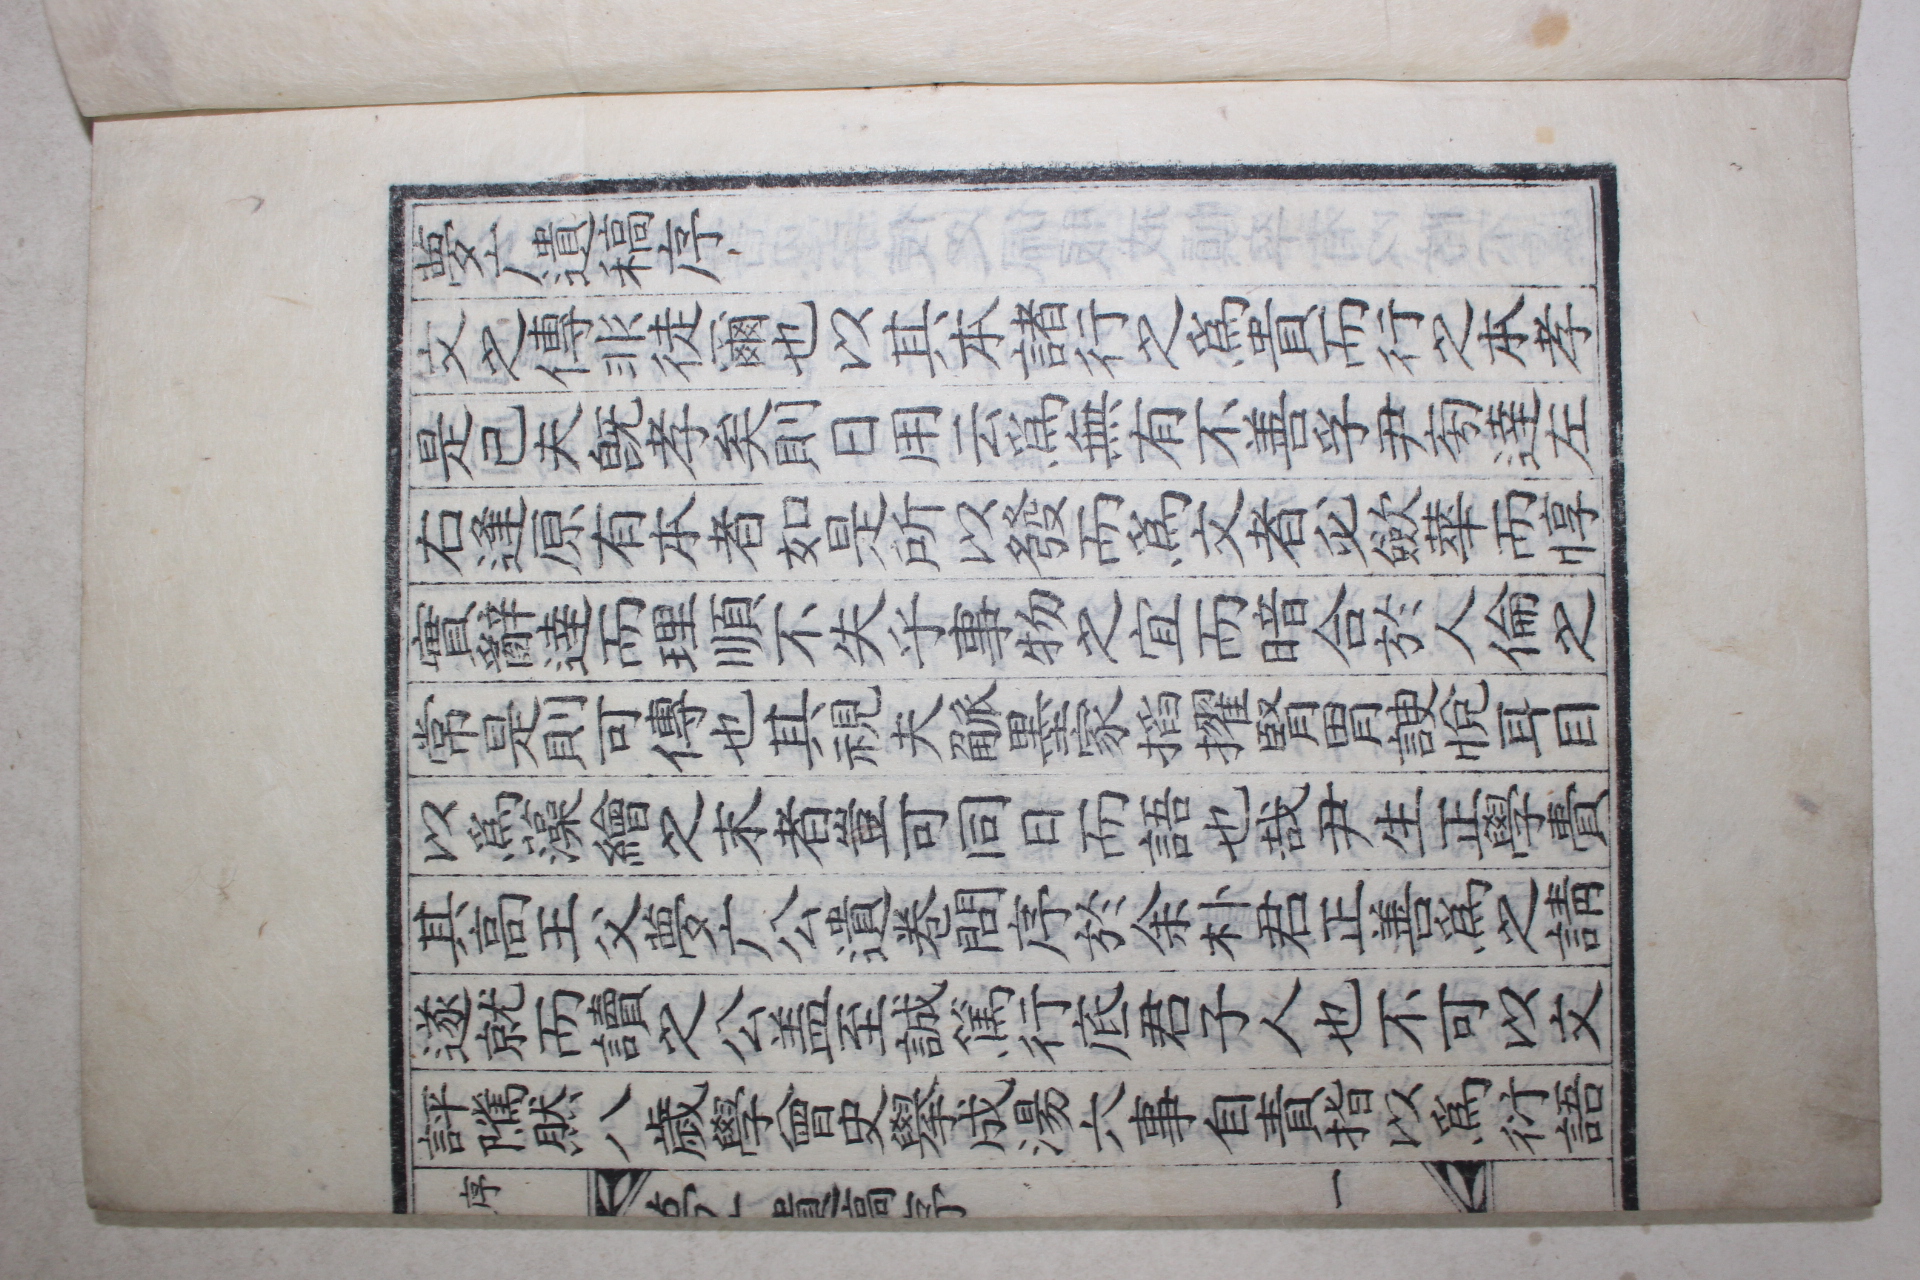 夢广遺稿序
文之傳非徒爾也以其本諸行之爲貴而行之本孝
是已夫旣孝矣則日用云爲無有不善孚尹旁達左
右逢原有本者如是所以發而爲文者必歛華而惇
實辭達而理順不失乎事物之宜而暗合於人倫之
常是則可傳也其視夫觚墨家搯擢腎胃諛悅耳目
以爲藻繪之末者豈可同日而語也哉尹生正學賷
其高王父夢广公遺卷問序於余朴君正善爲之請
遂就而讀之公盖至誠篤行底君子人也不可以文
評隲然八歲學曾史擧成湯六事自責指以爲衍語
序
夢广遺稿序
一